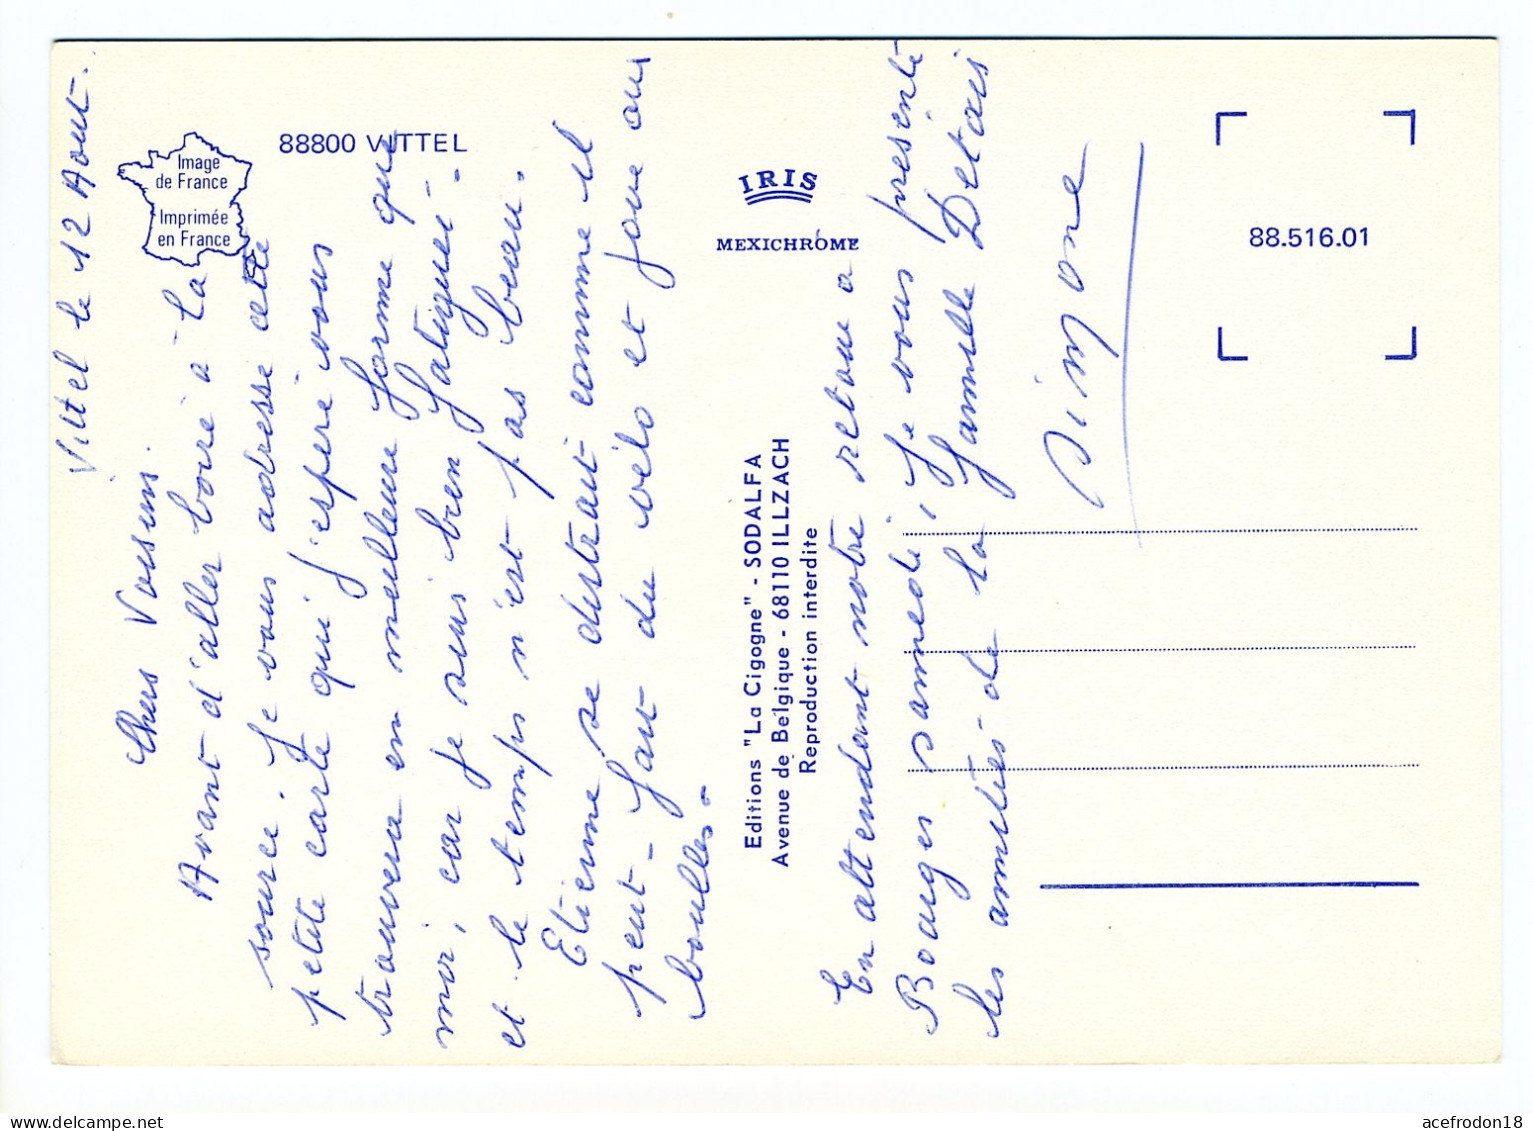 Vittel le 12 Aout.
Chers Voisins.
Avant d'aller boire à la
source. Je vous adresse cette
petite carte qui j'espère vous
trouvera en meilleure forme que
moi, car je suis bien fatiguée -
et le temps n'est pas beau.
Etienne se distrait comme il
peut - fait du vélo et joue aux
boulles -
En attendant notre retour a
Bourges samedi, Je vous présente
les amitiés de la famille Detais
Simone
88800 VITTEL
Image
de France
Imprimée
en France
IRIS
MEXICHROME
Editions "La Cigogne" - SODALFA
Avenue de Belgique - 68110 ILLZACH
Reproduction interdite
88.516.01
acefrodon18